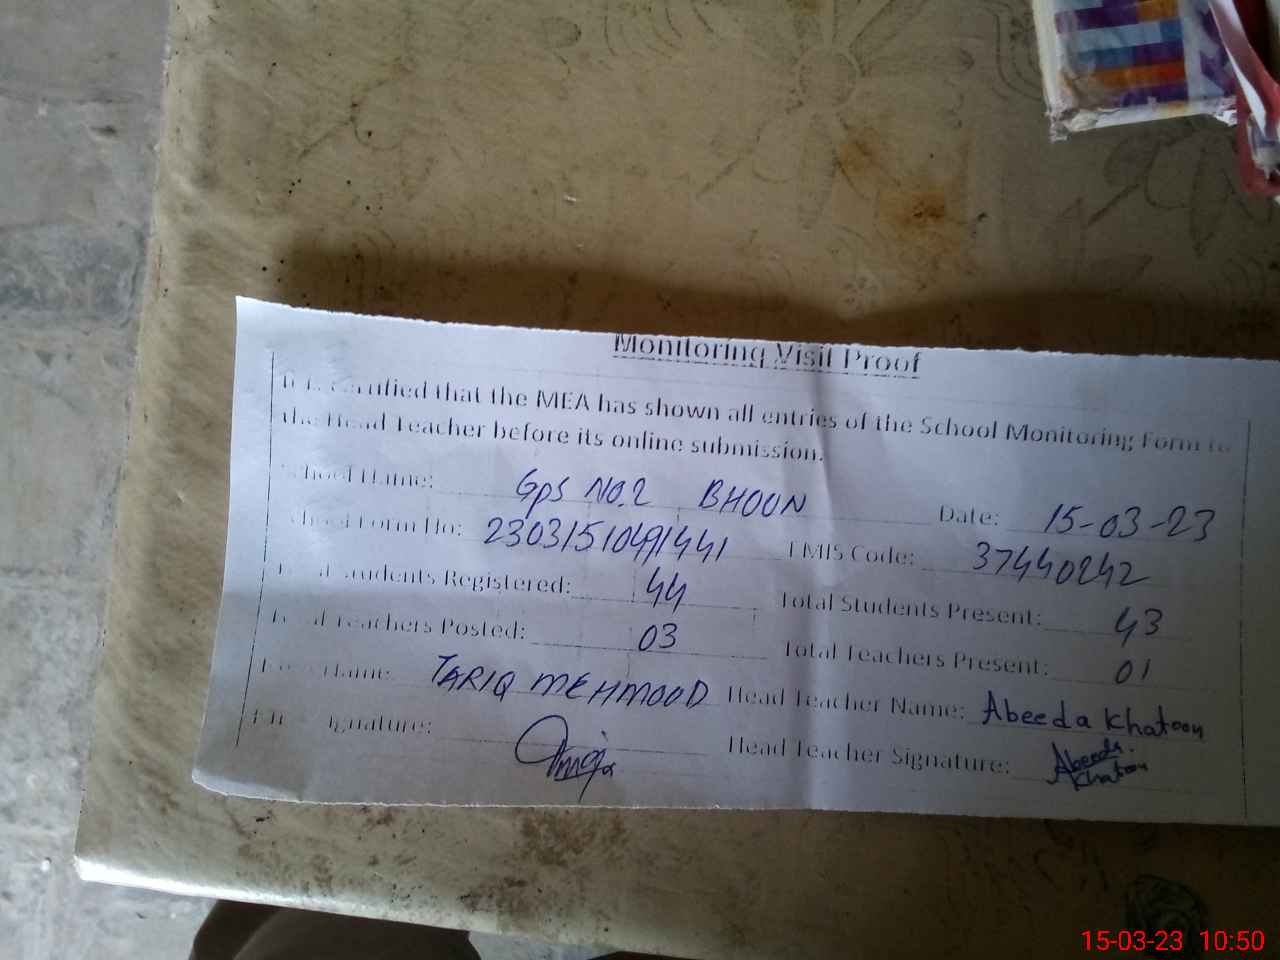 Monitoring Visit Proof
It is certified that the MEA has shown all entries of the School Monitoring Form to
the Head Teacher before its online submission.
School Name: Gps No.2 BHOUN Date: 15-03-23
School Form No: 23031510491441 EMIS Code: 37440242
Total Students Registered: 44 Total Students Present: 43
Total Teachers Posted: 03 Total Teachers Present: 01
Name: TARIQ MEHMOOD Head Teacher Name: Abeeda Khatoon
Signature: Head Teacher Signature: Abeeda Khatoon
15-03-23 10:50